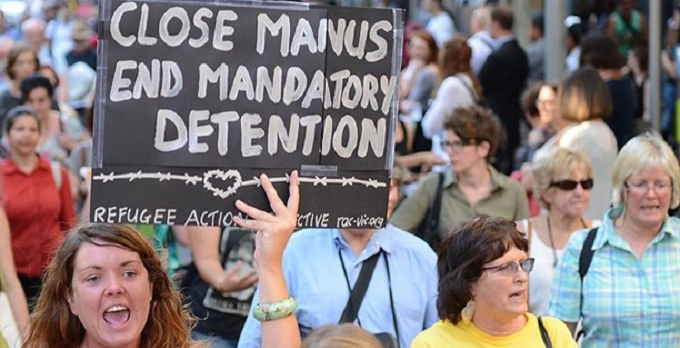 CLOSE MANUS
END MANDATORY
DETENTION
REFUGEE ACTION rac-vic.org